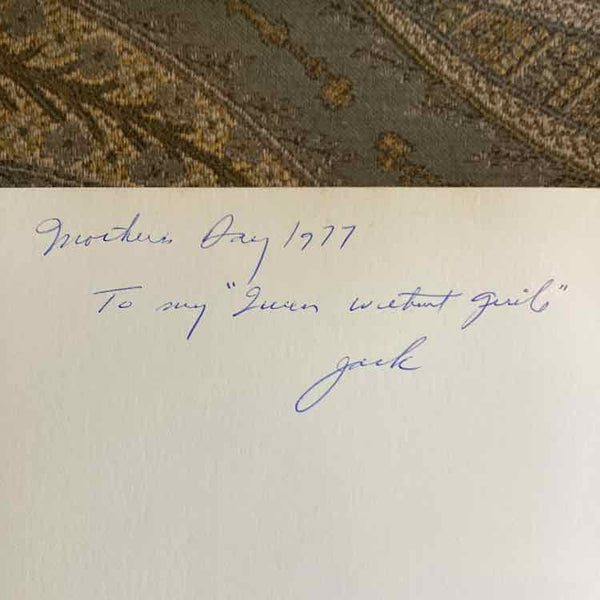 Mothers Day 1977
To my "Queen without
Jack